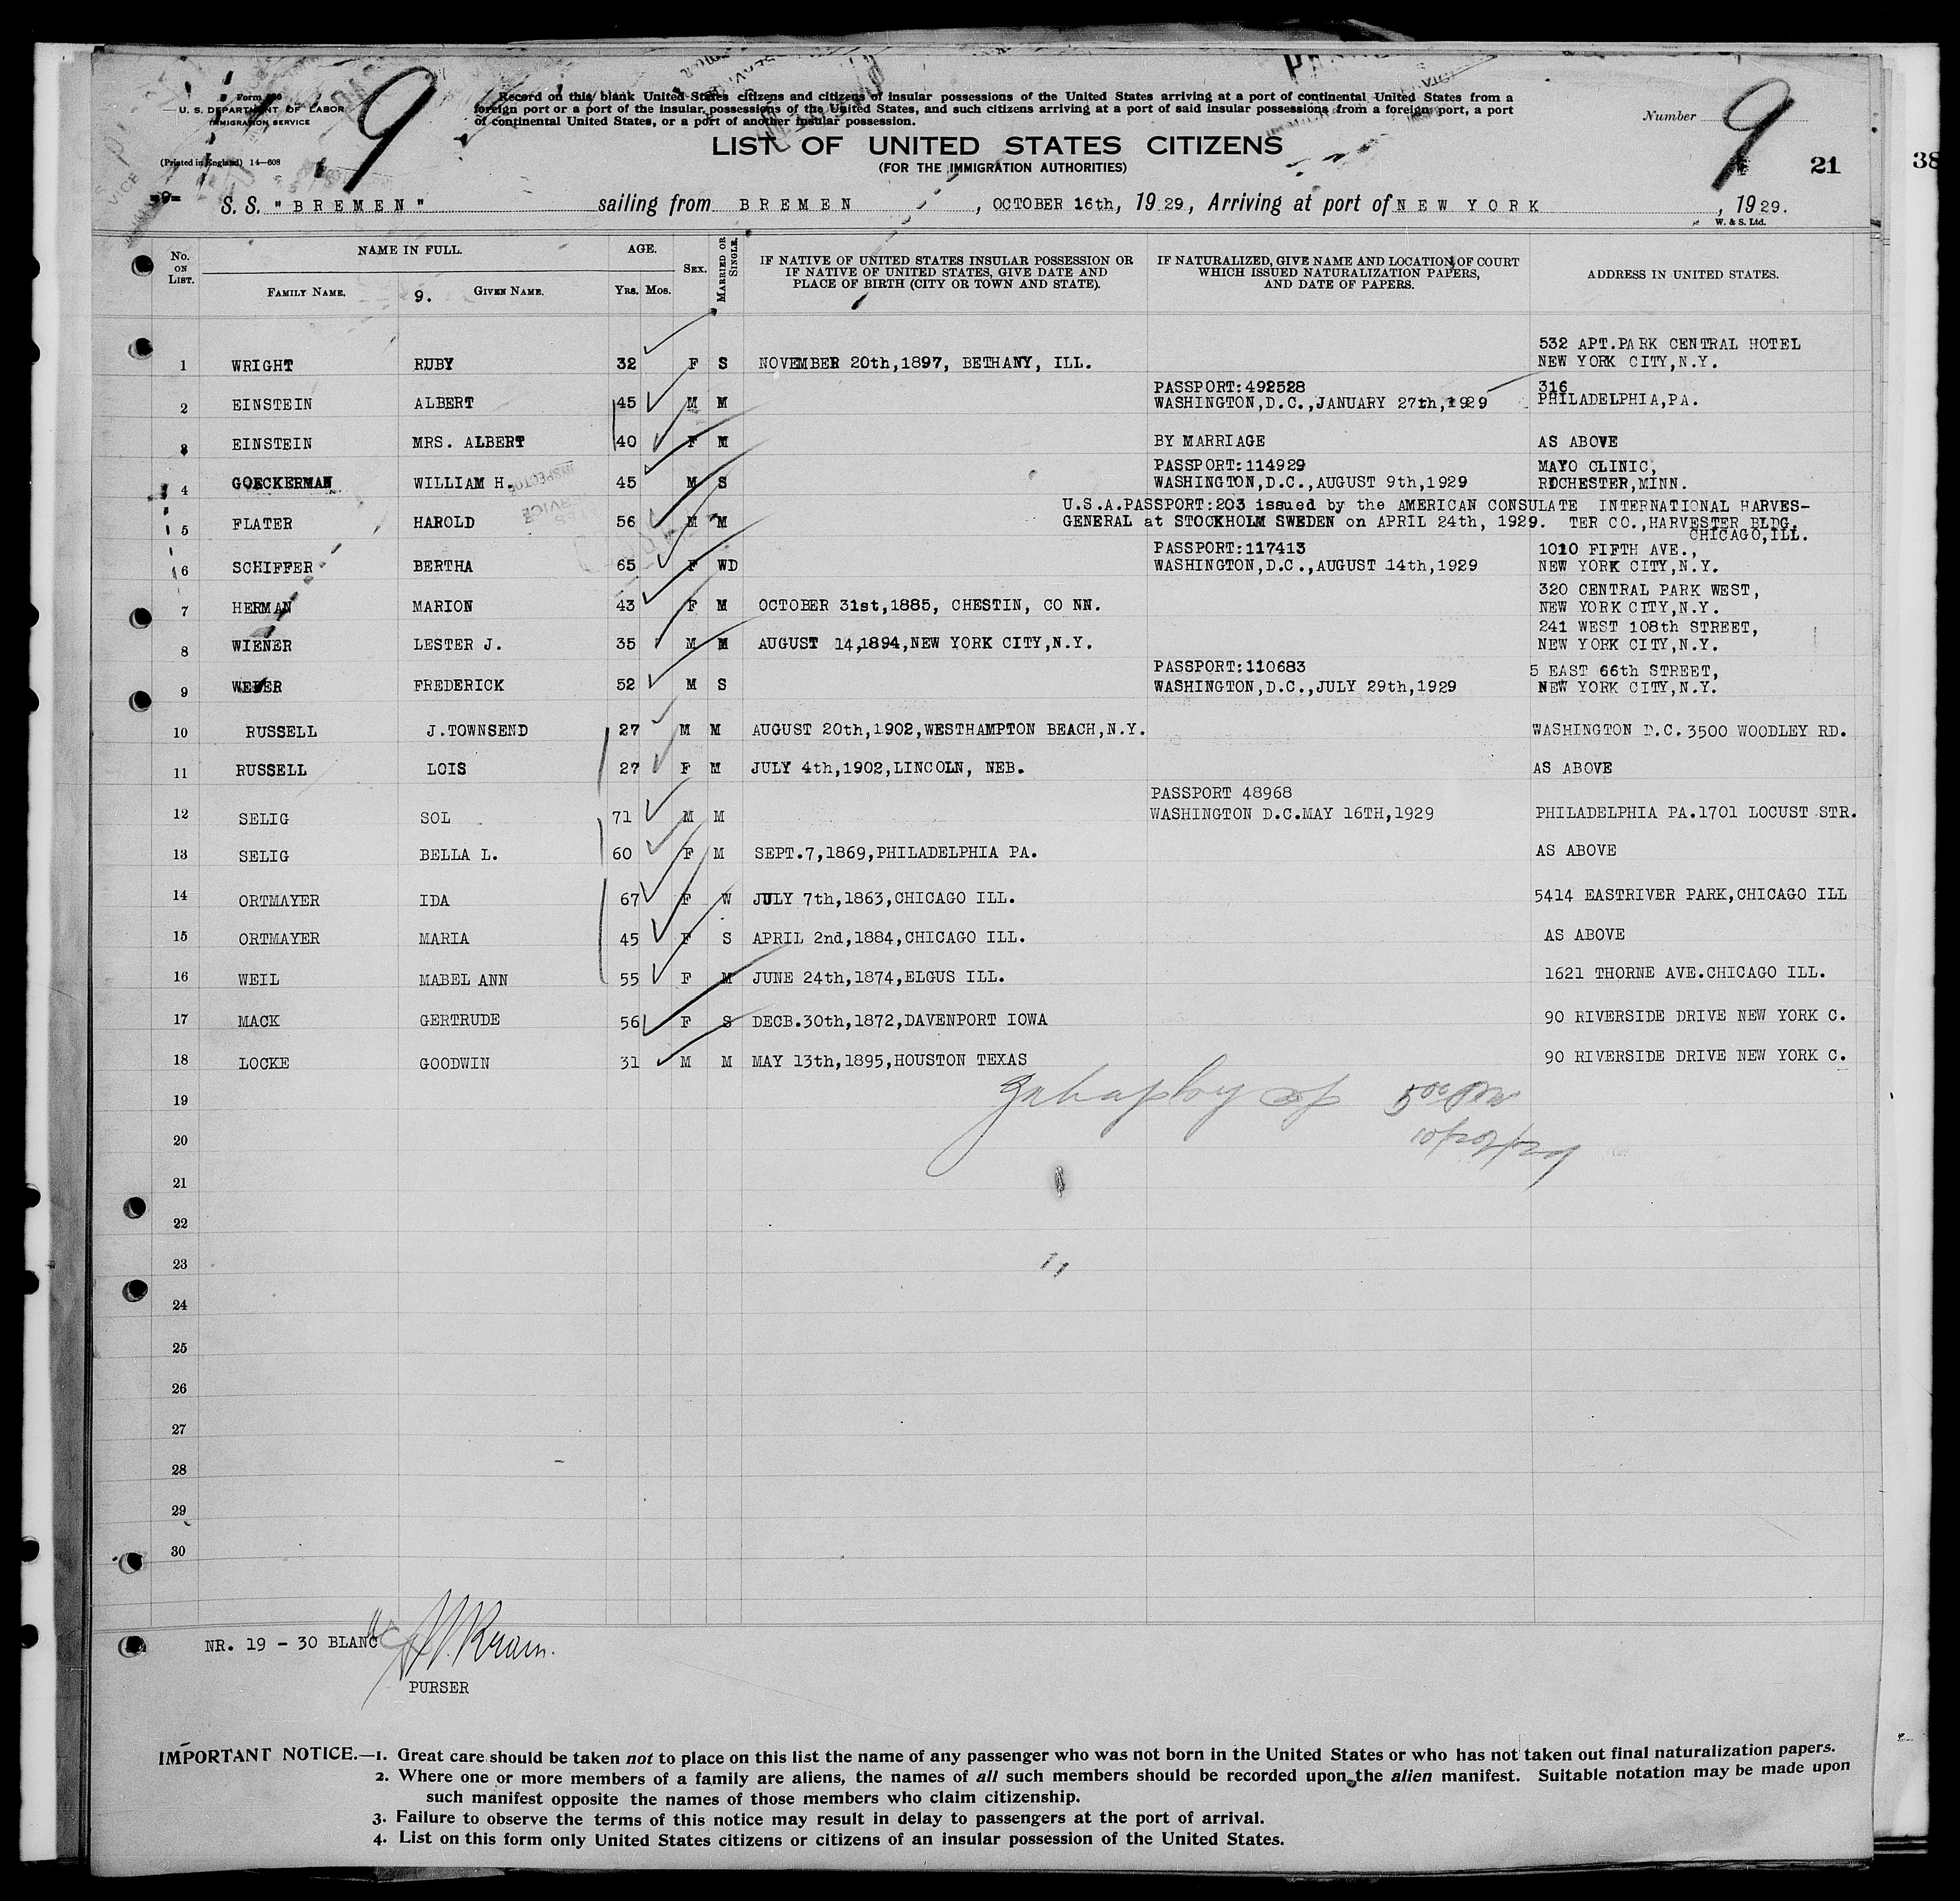 Form
U. S. DEPARTMENT OF LABOR
IMMIGRATION SERVICE
(Printed in England) 14—608
9
Record on this blank United States citizens and citizens of insular possessions of the United States arriving at a port of continental United States from a
foreign port or a port of the insular possessions of the United States, and such citizens arriving at a port of said insular possessions from a foreign port, a port
of continental United States, or a port of another insular possession.
Number 9
LIST OF UNITED STATES CITIZENS
(FOR THE IMMIGRATION AUTHORITIES)
21
38
=9=
S. S. "BREMEN" sailing from BREMEN, OCTOBER 16th, 1929, Arriving at port of NEW YORK, 1929.
W. & S. Ltd.
No. ON LIST. NAME IN FULL. AGE. SEX. MARRIED OR SINGLE. IF NATIVE OF UNITED STATES INSULAR POSSESSION OR IF NATIVE OF UNITED STATES, GIVE DATE AND PLACE OF BIRTH (CITY OR TOWN AND STATE). IF NATURALIZED, GIVE NAME AND LOCATION OF COURT WHICH ISSUED NATURALIZATION PAPERS, AND DATE OF PAPERS. ADDRESS IN UNITED STATES.
FAMILY NAME. 9. GIVEN NAME. YRS. MOS.
532 APT.PARK CENTRAL HOTEL
1 WRIGHT RUBY 32 F S NOVEMBER 20th,1897, BETHANY, ILL. NEW YORK CITY,N.Y.
PASSPORT:492528 316
2 EINSTEIN ALBERT 45 M M WASHINGTON,D.C.,JANUARY 27th,1929 PHILADELPHIA,PA.
3 EINSTEIN MRS. ALBERT 40 F M BY MARRIAGE AS ABOVE
PASSPORT:114929 MAYO CLINIC,
4 GOECKERMAN WILLIAM H. 45 M S WASHINGTON,D.C.,AUGUST 9th,1929 ROCHESTER,MINN.
U.S.A.PASSPORT:203 issued by the AMERICAN CONSULATE INTERNATIONAL HARVES-
5 FLATER HAROLD 56 M M GENERAL at STOCKHOLM SWEDEN on APRIL 24th, 1929. TER CO.,HARVESTER BLDG.
CHICAGO,ILL.
PASSPORT:117413 1010 FIFTH AVE.,
6 SCHIFFER BERTHA 65 F WD WASHINGTON,D.C.,AUGUST 14th,1929 NEW YORK CITY,N.Y.
320 CENTRAL PARK WEST,
7 HERMAN MARION 43 F M OCTOBER 31st,1885, CHESTIN, CO NN. NEW YORK CITY,N.Y.
241 WEST 108th STREET,
8 WIENER LESTER J. 35 M M AUGUST 14,1894,NEW YORK CITY,N.Y. NEW YORK CITY,N.Y.
PASSPORT:110683 5 EAST 66th STREET,
9 WEBER FREDERICK 52 M S WASHINGTON,D.C.,JULY 29th,1929 NEW YORK CITY,N.Y.
10 RUSSELL J.TOWNSEND 27 M M AUGUST 20th,1902,WESTHAMPTON BEACH,N.Y. WASHINGTON D.C.3500 WOODLEY RD.
11 RUSSELL LOIS 27 F M JULY 4th,1902,LINCOLN, NEB. AS ABOVE
PASSPORT 48968
12 SELIG SOL 71 M M WASHINGTON D.C.MAY 16TH,1929 PHILADELPHIA PA.1701 LOCUST STR.
13 SELIG BELLA L. 60 F M SEPT.7,1869,PHILADELPHIA PA. AS ABOVE
14 ORTMAYER IDA 67 F W JULY 7th,1863,CHICAGO ILL. 5414 EASTRIVER PARK,CHICAGO ILL
15 ORTMAYER MARIA 45 F S APRIL 2nd,1884,CHICAGO ILL. AS ABOVE
16 WEIL MABEL ANN 55 F M JUNE 24th,1874,ELGUS ILL. 1621 THORNE AVE.CHICAGO ILL.
17 MACK GERTRUDE 56 F S DECB.30th,1872,DAVENPORT IOWA 90 RIVERSIDE DRIVE NEW YORK C.
18 LOCKE GOODWIN 31 M M MAY 13th,1895,HOUSTON TEXAS 90 RIVERSIDE DRIVE NEW YORK C.
19
20
21
22
23
24
25
26
27
28
29
30
NR. 19 - 30 BLANC
PURSER
IMPORTANT NOTICE.—1. Great care should be taken not to place on this list the name of any passenger who was not born in the United States or who has not taken out final naturalization papers.
2. Where one or more members of a family are aliens, the names of all such members should be recorded upon the alien manifest. Suitable notation may be made upon
such manifest opposite the names of those members who claim citizenship.
3. Failure to observe the terms of this notice may result in delay to passengers at the port of arrival.
4. List on this form only United States citizens or citizens of an insular possession of the United States.